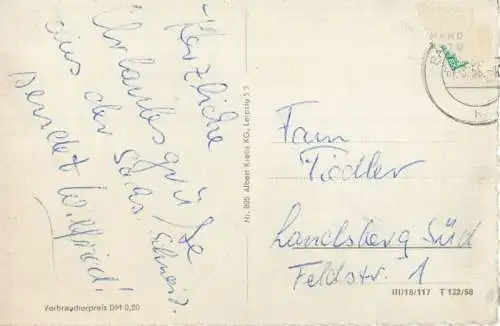 Herzliche
Urlaubsgrüße
aus der Sächs. Schweiz.
sendet Wilfried!
Fam
Tiedler
Landsberg Süd
Feldstr. 1
Nr. 895 Albert Kranz KG., Leipzig S 3
Verbraucherpreis DM 0,20
III/18/117 T 122/58